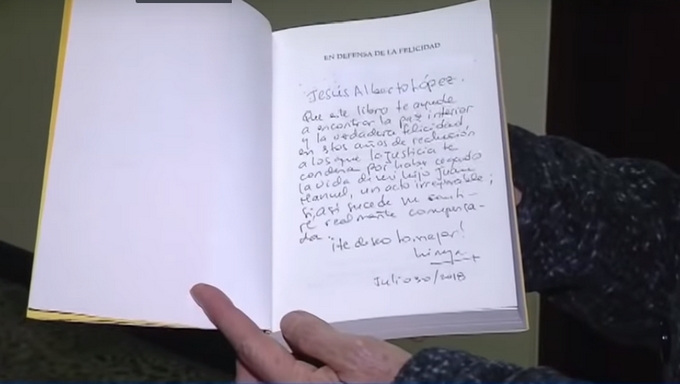 EN DEFENSA DE LA FELICIDAD
Jesús Alberto López.
Que este libro te ayude
a encontrar la paz interior
y la verdadera felicidad
en estos años de reclusión
a los que la Justicia te
condena por haber cegado
la vida de mi hijo Juan
Manuel, un acto irreparable;
si así sucede me senti-
ré realmente compensa-
da. ¡te deseo lo mejor!
Julio 30/2018